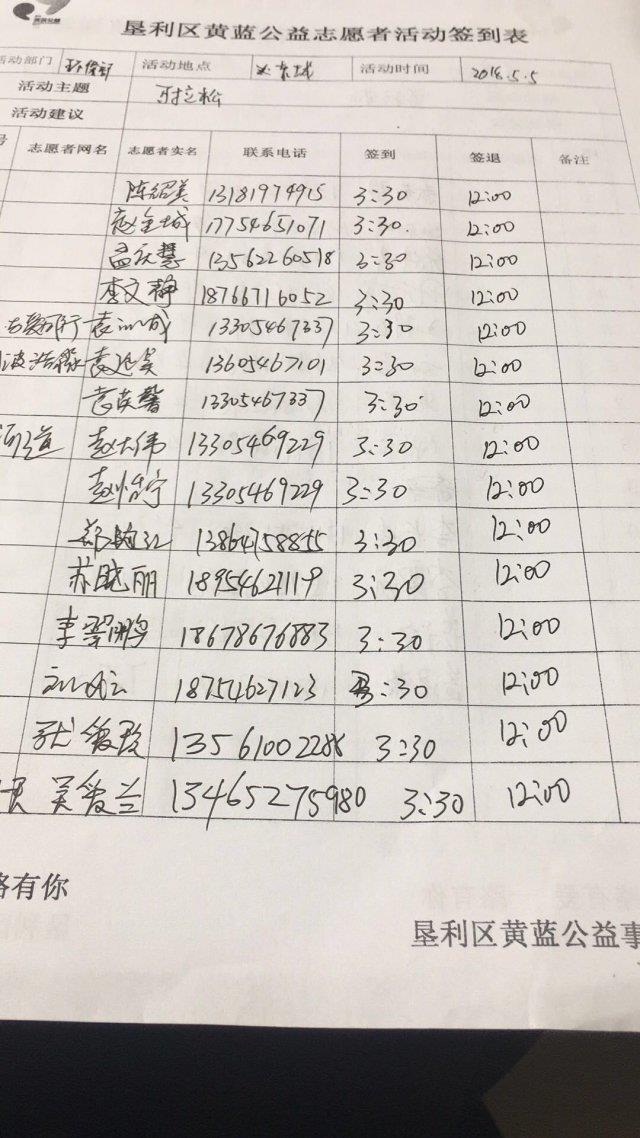 垦利区黄蓝公益志愿者活动签到表
活动部门 环保部 活动地点 活动时间 2018.5.5
活动主题
活动建议
号 志愿者网名 志愿者实名 联系电话 签到 签退 备注
陈绍美 13181974915 3:30 12:00
寇金城 17754651071 3:30. 12:00
孟庆慧 13562260518 3:30 12:00
李文静 18766716052 3:30 12:00
13305467337 3:30 12:00
13605467101 3:30 12:00
袁英馨 13305467337 3:30 12:00
赵大伟 13305469229 3:30 12:00
赵怡宁 13305469229 3:30 12:00
13864758855 3:30 12:00
苏晓丽 18954621119 3:30 12:00
李翠鹏 18678676883 3:30 12:00
18754627123 3:30 12:00
13561002286 3:30 12:00
吴俊兰 13465275980 3:30 12:00
路有你
垦利区黄蓝公益事